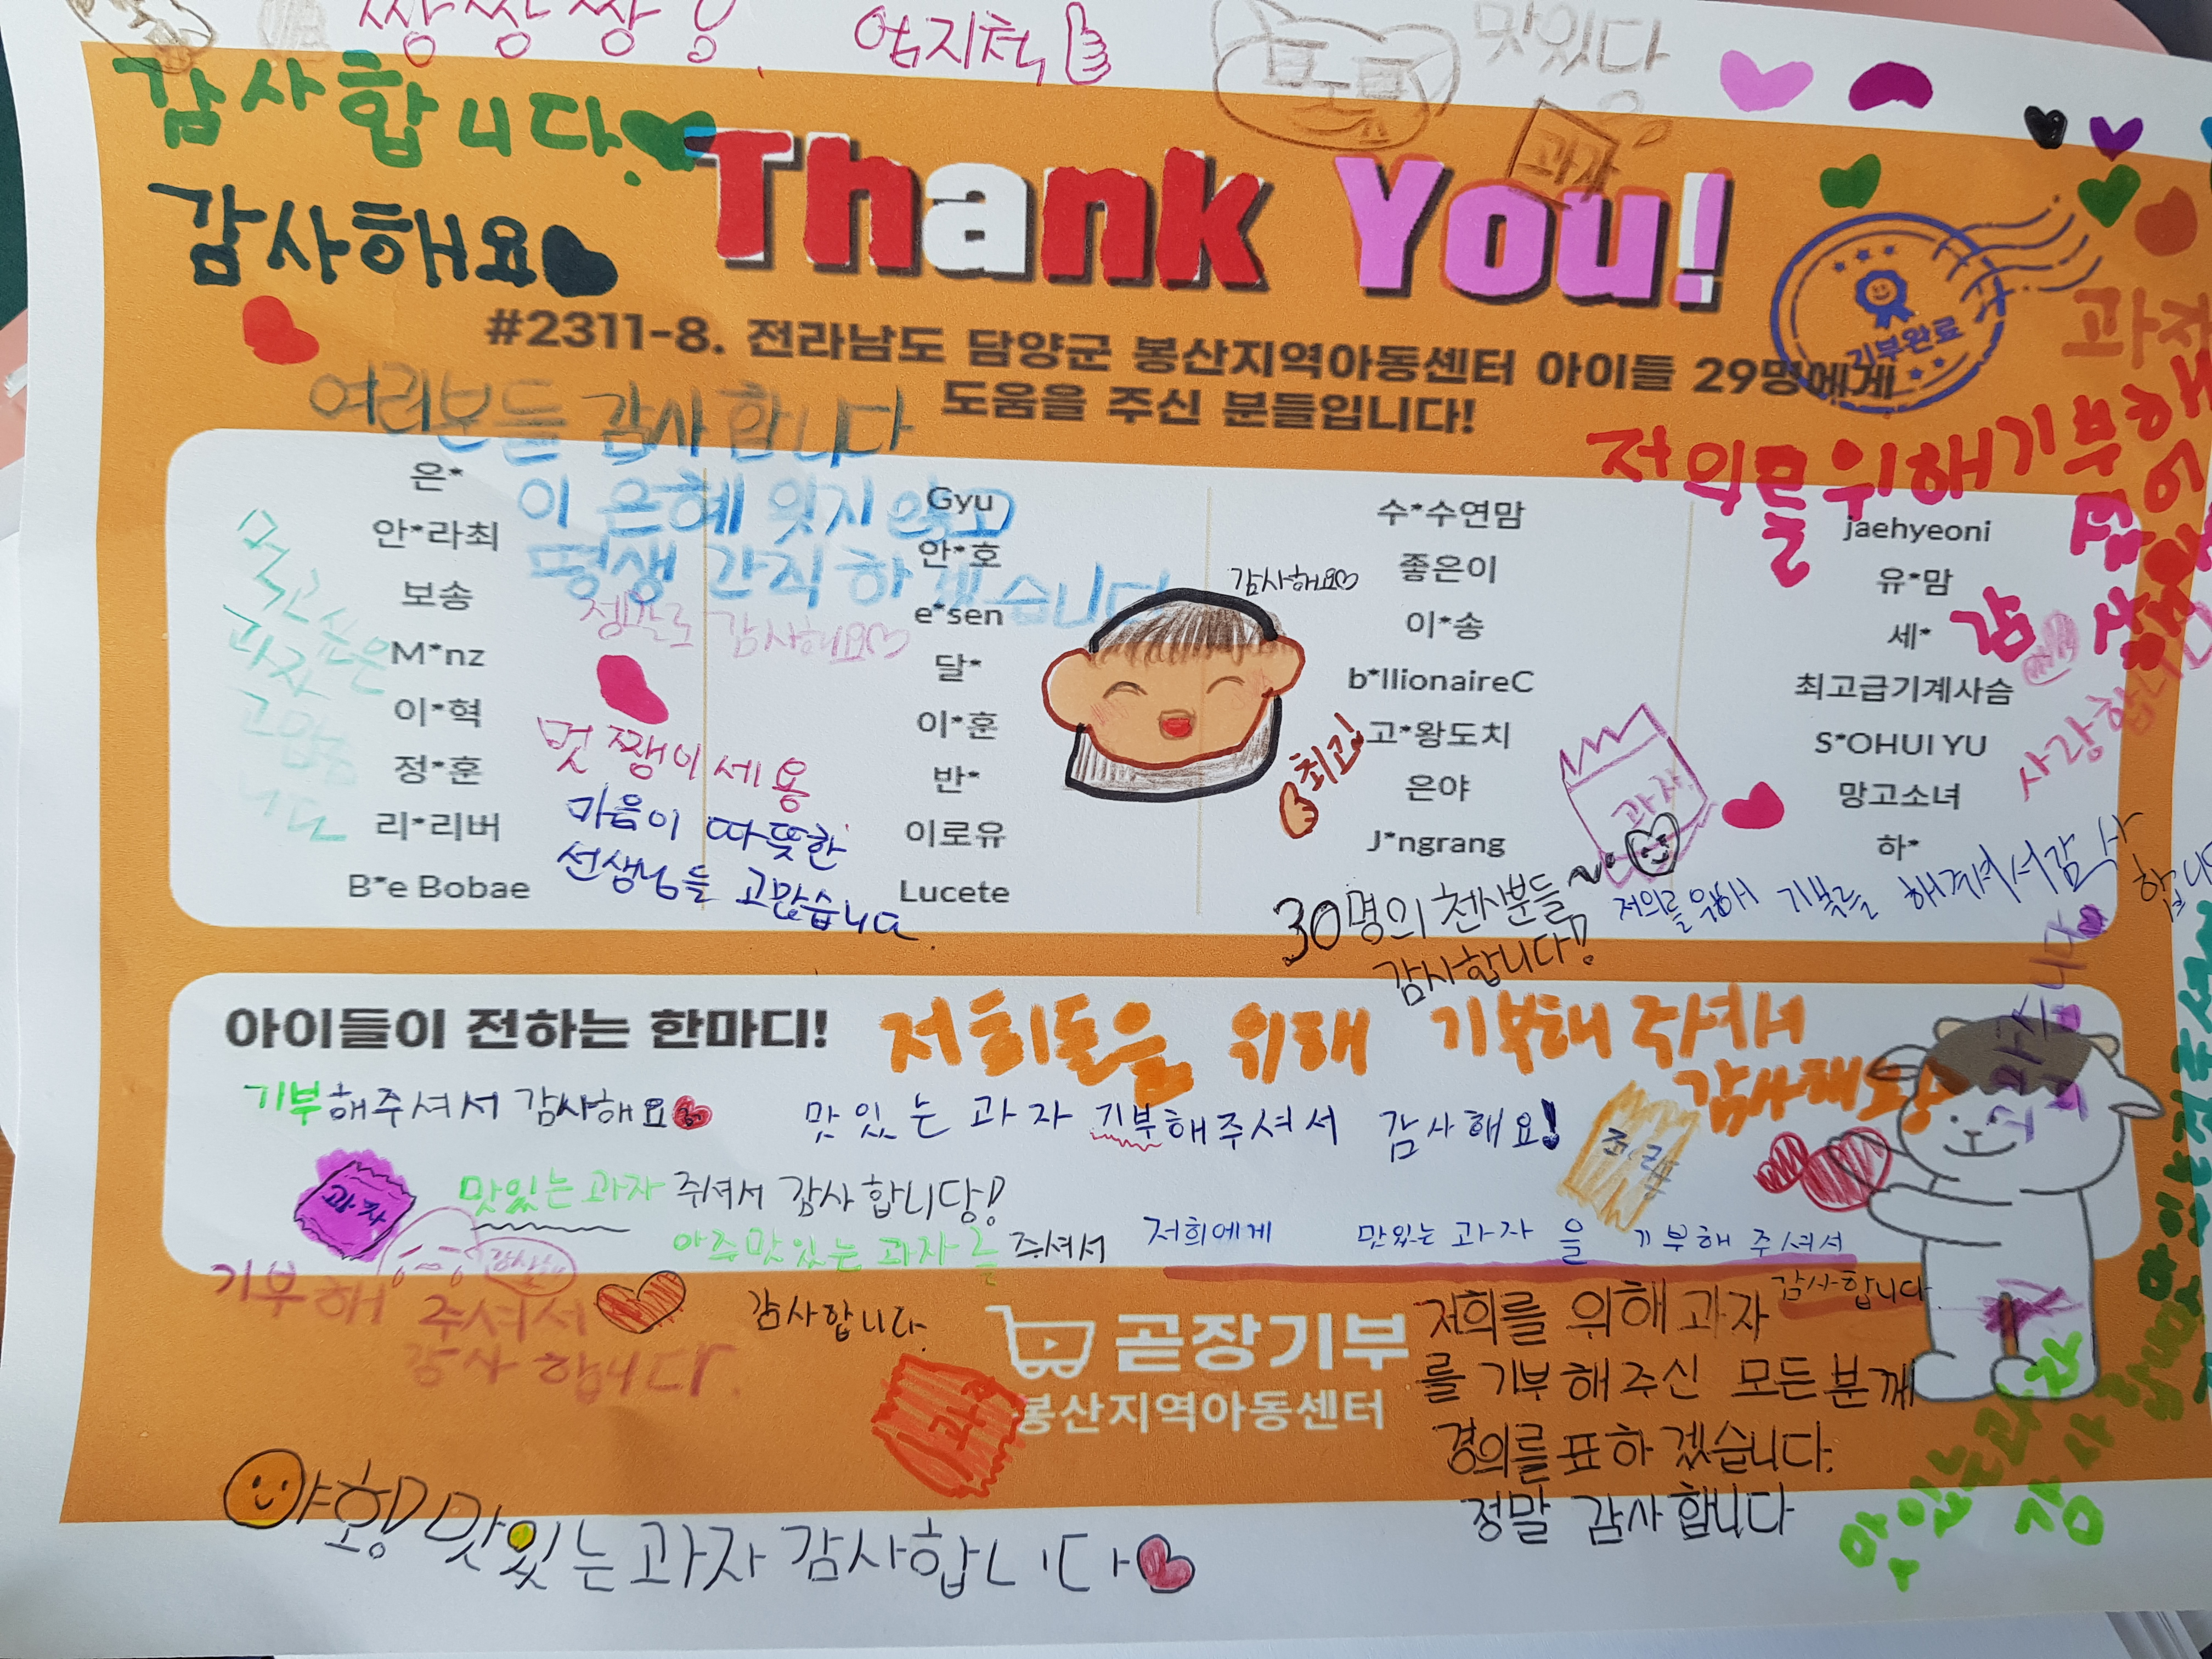 짱짱짱!
엄지척
맛있다
과자
감사합니다.
감사해요
Thank You!
기부완료
#2311-8. 전라남도 담양군 봉산지역아동센터 아이들 29명에게
도움을 주신 분들입니다!
여러분들 감사합니다
이 은혜 잊지 않고
평생 간직하겠습니다
정말로 감사해요
저의를 위해 기부해
은*
안*라최
보송
M*nz
이*혁
정*훈
리*리버
B*e Bobae
Gyu
안*호
e*sen
달*
이*훈
반*
이로유
Lucete
수*수연맘
좋은이
이*송
b*llionaireC
고*왕도치
은야
J*ngrang
jaehyeoni
유*맘
세*
최고급기계사슴
S*OHUI YU
망고소녀
하*
감사해요
최고!
과자
사랑합니다
멋쨍이세용
마음이 따뜻한
선생님들 고맙습니다.
30명의 첸사분들~
감사합니다!
저의를 위해 기부를 해계셔서 감사
합니다
아이들이 전하는 한마디!
저희들을 위해 기부해 주셔서
감사해요
기부해주셔서 감사해요
맛있는 과자 기부해주셔서 감사해요!
과자
맛있는과자 주셔서 감사합니당!
아주맛있는 과자를 주셔서
감사합니다.
저희에게 맛있는 과자을 기부해 주셔서
감사합니다.
기부해 주셔서
감사합니다.
곧장기부
봉산지역아동센터
과자
저희를 위해 과자
를 기부해주신 모든분께
경의를 표하겠습니다.
정말 감사합니다
맛있는과자
감사합니다
야호! 맛있는과자 감사합니다